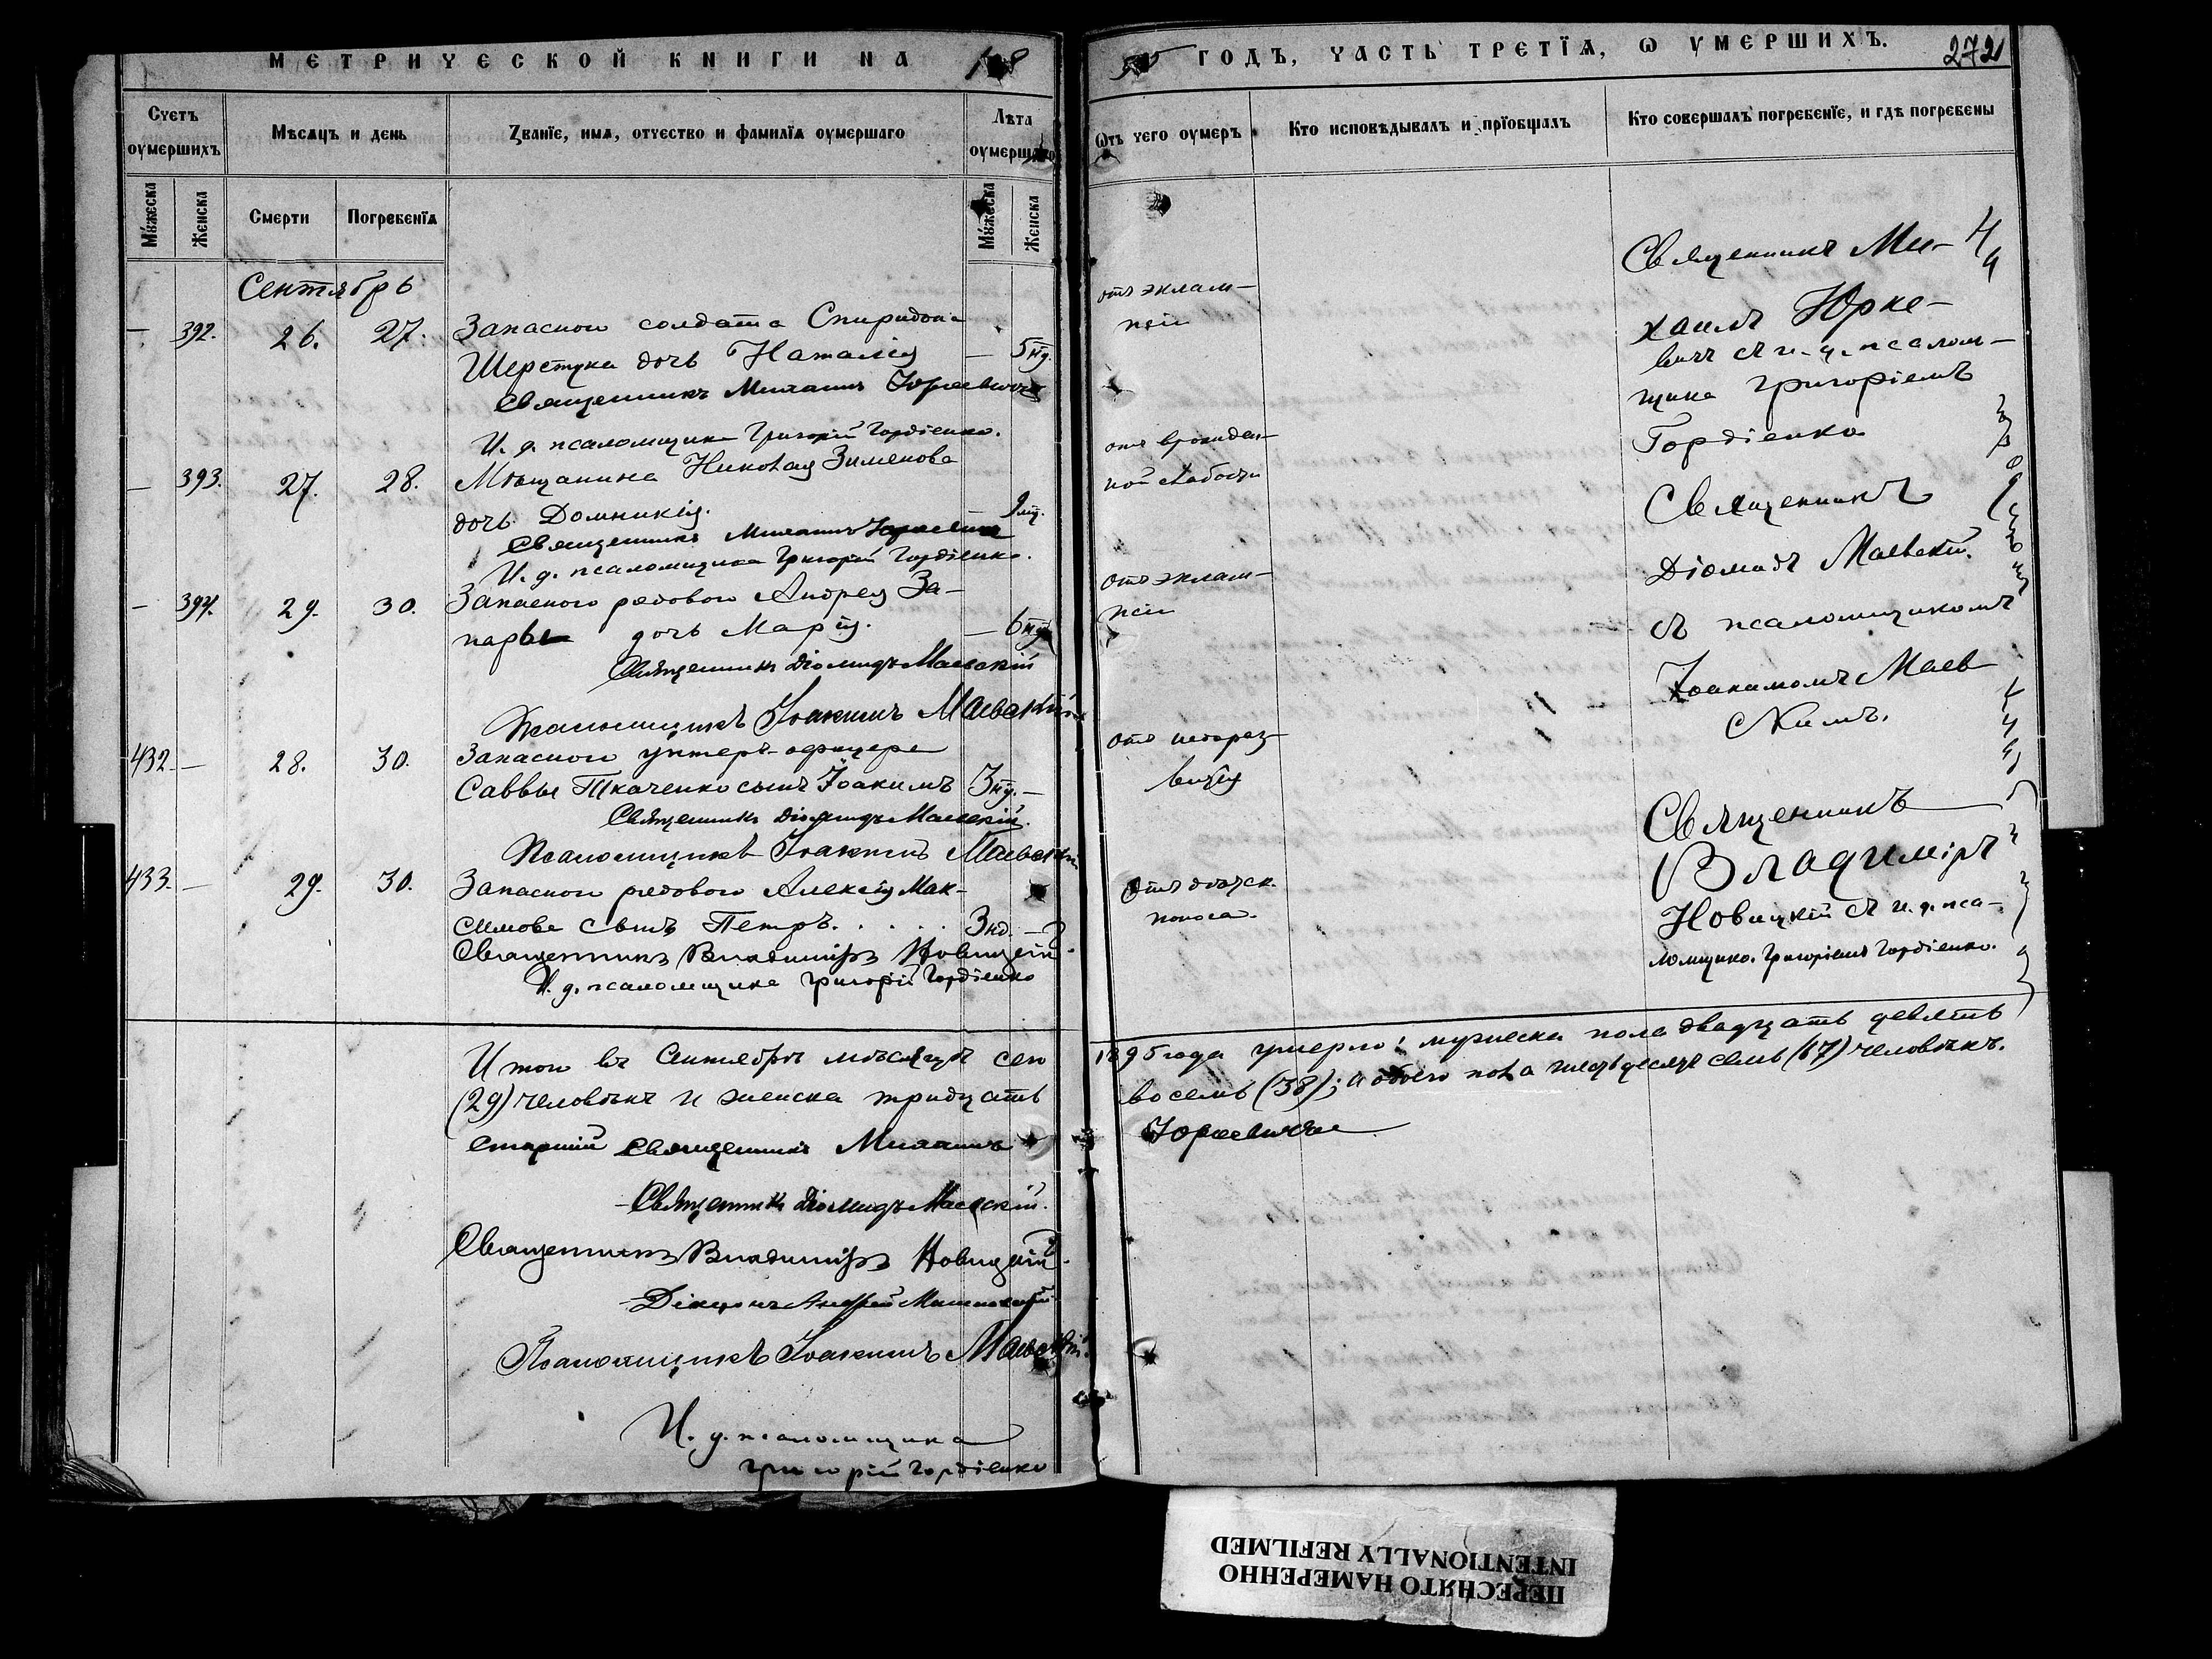 МЕТРИЧЕСКОЙ КНИГИ НА 18
Счетъ оумершихъ
Мѣсяцъ и день
Званіе, имя, отчество и фамилія оумершаго
Лѣта оумершаго
Мужеска
Женска
Смерти
Погребенія
Мужеска
Женска
Сентябрь
— 392. 26. 27. Запасного солдата Спиридона
Шерстука дочь Наталія — 5 нд.
Священникъ Михаилъ Юркевичъ
И. д. псаломщика Григорій Гордіенко.
— 393. 27. 28. Мѣщанина Николая Зименова
дочь Домникія.
Священникъ Михаилъ Юркевичъ
И. д. псаломщика Григорій Гордіенко.
— 394. 29. 30. Запасного рядового Андрея За-
пары дочь Марія. — 6 нд.
Священникъ Діомидъ Маевскій
Псаломщикъ Іоакимъ Маевскій
432. — 28. 30. Запасного унтеръ-офицера
Саввы Ткаченко сынъ Іоакимъ 3 нд. —
Священникъ Діомидъ Маевскій.
Псаломщикъ Іоакимъ Маевскій
433. — 29. 30. Запасного рядового Алексія Мак-
симова сынъ Петръ. . . . . 3 нд. —
Священникъ Владиміръ Новицкій.
И. д. псаломщика Григорій Гордіенко
Итого въ Сентябрѣ мѣсяцѣ сего
(29) человѣкъ и женска тридцать
Старшій Священникъ Михаилъ
Священникъ Діомидъ Маевскій.
Священникъ Владиміръ Новицкій.
Діаконъ Андрей
Псаломщикъ Іоакимъ Маевскій.
И. д. псаломщика
Григорій Гордіенко
95 ГОДЪ, ЧАСТЬ ТРЕТІЯ, Ѡ УМЕРШИХЪ.
272
Ѿтъ чего оумеръ
Кто исповѣдывалъ и пріобщалъ
Кто совершалъ погребеніе, и гдѣ погребены
отъ эклам-
псіи
отъ врожден-
ной слабости
отъ эклам-
псіи
отъ недораз-
витія
отъ дѣтск.
поноса.
Священникъ Ми-
хаилъ Юрке-
вичъ съ и. д. псалом-
щика Григоріемъ
Гордіенко
Священникъ
Діомидъ Маевскій.
съ псаломщикомъ
Іоакимомъ Маев
скимъ.
Священникъ
Владиміръ
Новицкій съ и. д. пса-
ломщика. Григоріемъ Гордіенко.
1895 года умерло: мужеска пола двадцать девять
восемь (38); а обоего пола шестьдесятъ семь (67) человѣкъ.
Юркевичъ
ПЕРЕСНЯТО НАМЕРЕННО
INTENTIONALLY REFILMED